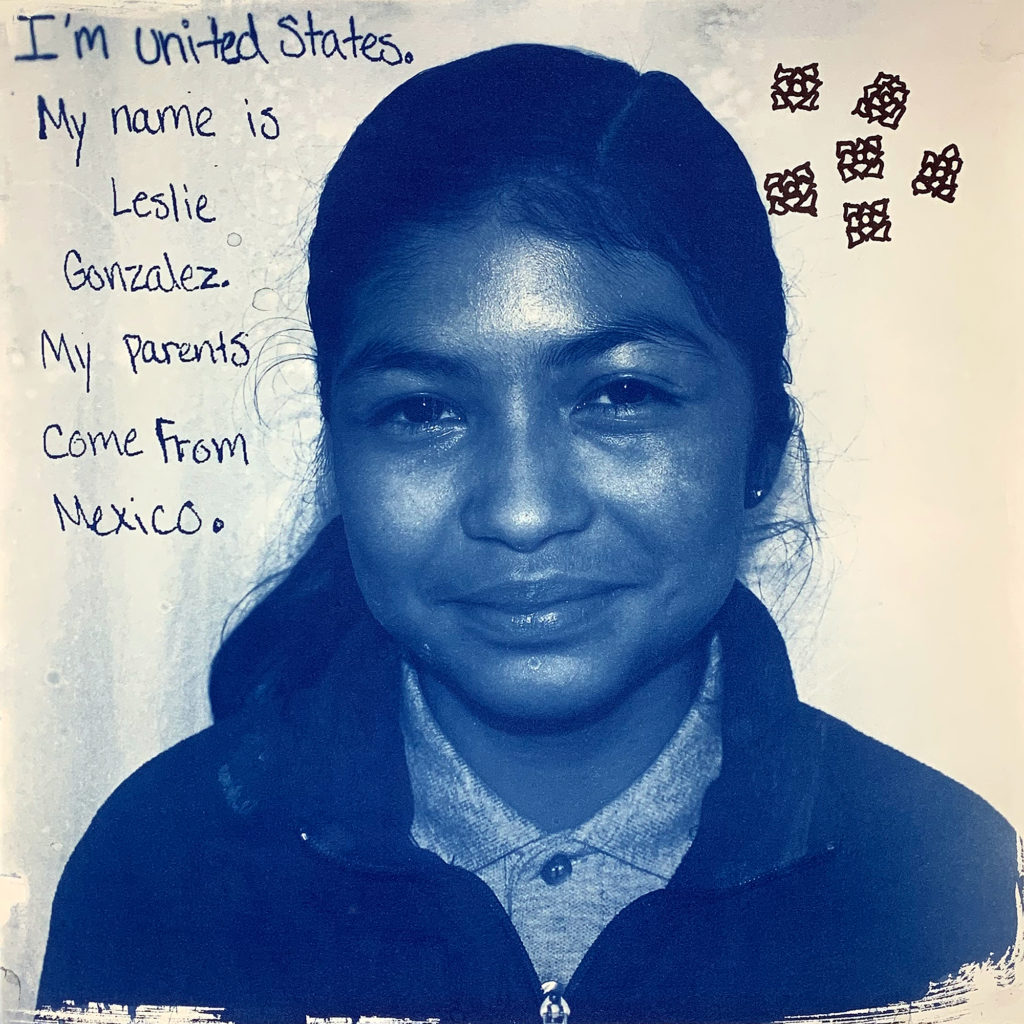 I'm united States.
My name is
Leslie
Gonzalez.
My parents
Come From
Mexico.